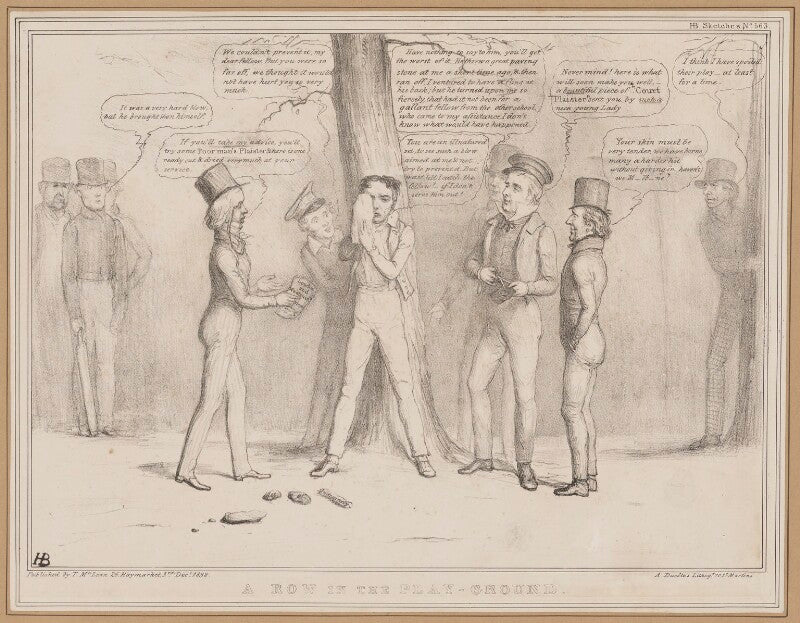 HB Sketches, No. 563.
We couldn't prevent it, my
dear fellow. But you were so
far off, we thought it would
not have hurt you so very
much.
Have nothing to say to him, you'll get
the worst of it. He threw a great paving
stone at me a short time ago, & then
ran off, I ventured to have a fling at
his back; but he turned upon me so
fiercely that had it not been for a
gallant fellow from the other school,
who came to my assistance I don't
know what would have happened
Never mind! here is what
will soon make you well _
a beautiful piece of "Court
Plaister" sent you by such a
nice young Lady
I think I have spoiled
their play _ at least
for a time
It was a very hard blow,
but he brought it on himself.
If you'll take my advice, you'll
try some Poor man's Plaister there is one
ready cut & dried very much at your
service
You are an illnatured
set, to see such a blow
aimed at me & not
try to prevent it. But
wait till I catch the
fellow! _ if I don't
serve him out!
Your skin must be
very tender, we have borne
many a harder hit
without giving in haven't
we B_ll_ne?
HB
Published by T. McLean 26 Haymarket 3rd Decr. 1838
A. Ducôtes Lithogy. 70 St. Martins
A ROW IN THE PLAY-GROUND.